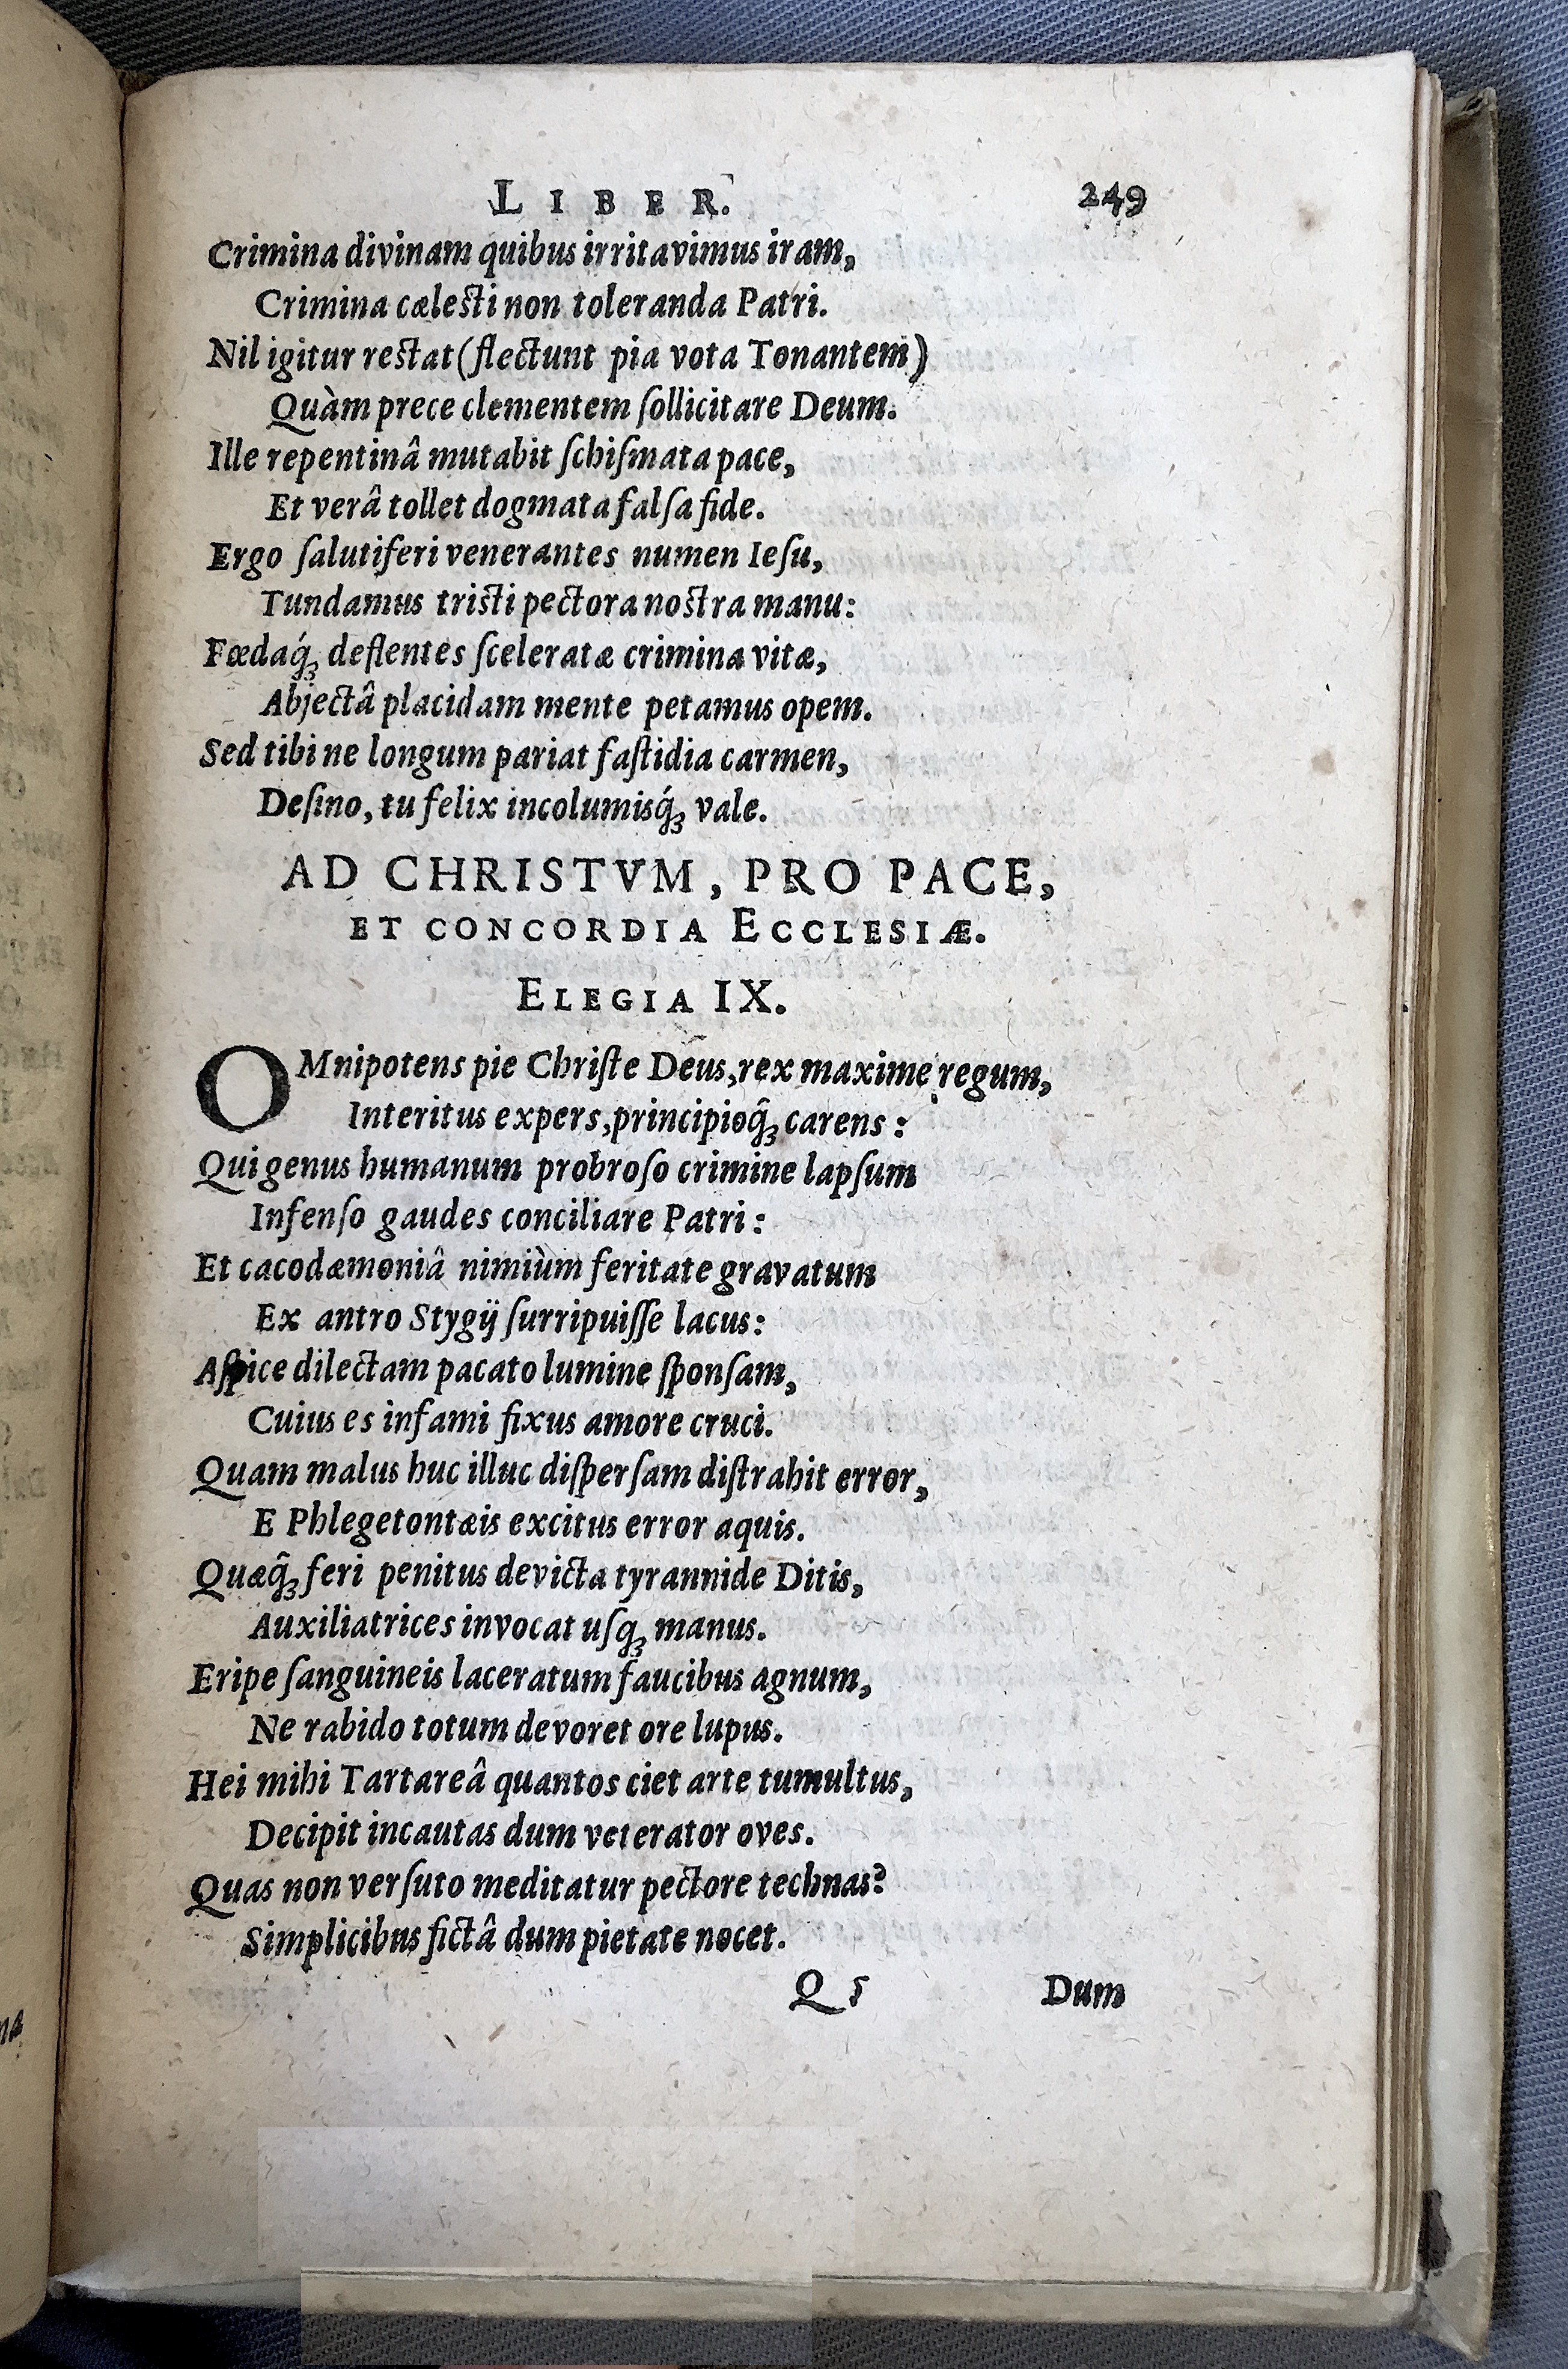 LIBER. 249
Crimina divinam quibus irritavimus iram,
Crimina cælesti non toleranda Patri.
Nil igitur restat (flectunt pia vota Tonantem)
Quàm prece clementem ſollicitare Deum.
Ille repentinâ mutabit ſchiſmata pace,
Et verâ tollet dogmata falſa fide.
Ergo ſalutiferi venerantes numen Ieſu,
Tundamus tristi pectora nostra manu:
Fœdaq́ꝫ deflentes ſceleratæ crimina vitæ,
Abjectâ placidam mente petamus opem.
Sed tibi ne longum pariat faſtidia carmen,
Deſino, tu felix incolumisq́ꝫ vale.
AD CHRISTVM, PRO PACE,
ET CONCORDIA ECCLESIÆ.
ELEGIA IX.
OMnipotens pie Chriſte Deus, rex maxime regum,
Interitus expers, principioq̃ꝫ carens:
Qui genus humanum probroſo crimine lapſum
Infenſo gaudes conciliare Patri:
Et cacodæmoniâ nimiùm feritate gravatum
Ex antro Stygij ſurripuiſſe lacus:
Aſpice dilectam pacato lumine ſponſam,
Cuius es infami fixus amore cruci.
Quam malus huc illuc diſperſam diſtrahit error,
E Phlegetontæis excitus error aquis.
Quæq̃ꝫ feri penitus devicta tyrannide Ditis,
Auxiliatrices invocat uſqꝫ manus.
Eripe ſanguineis laceratum faucibus agnum,
Ne rabido totum devoret ore lupus.
Hei mihi Tartareâ quantos ciet arte tumultus,
Decipit incautas dum veterator oves.
Quas non verſuto meditatur pectore technas?
Simplicibus fictâ dum pietate nocet.
Q 5 Dum